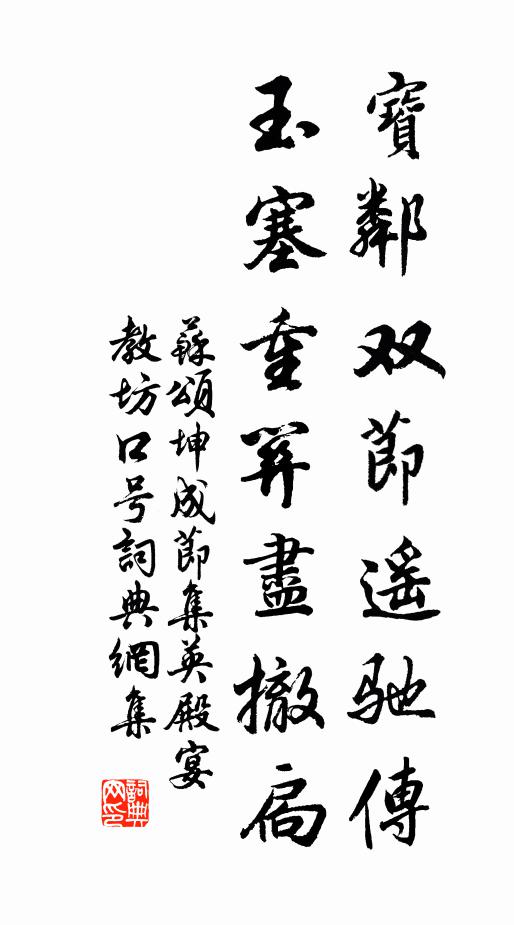 寶鄰双莭遥馳傳
玉塞重關盡撤扃
蘇頌坤成莭集英殿宴
教坊口号詞典網集
詞典
网印